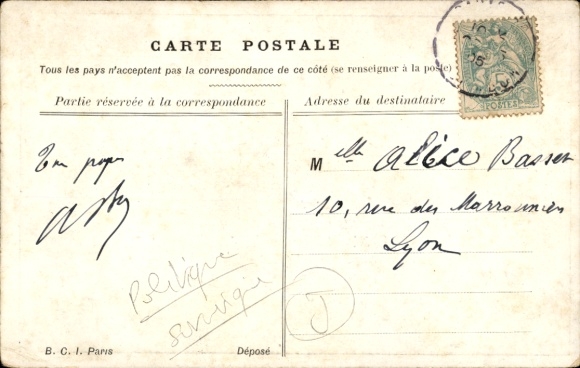 CARTE POSTALE
Tous les pays n'acceptent pas la correspondance de ce côté (se renseigner à la poste)
Partie réservée à la correspondance
Adresse du destinataire
Ton papa
Melle Alice Basset
10, rue des Marronniers
Lyon
Politique
satirique
J
B. C. I. Paris
Déposé
5
POSTES